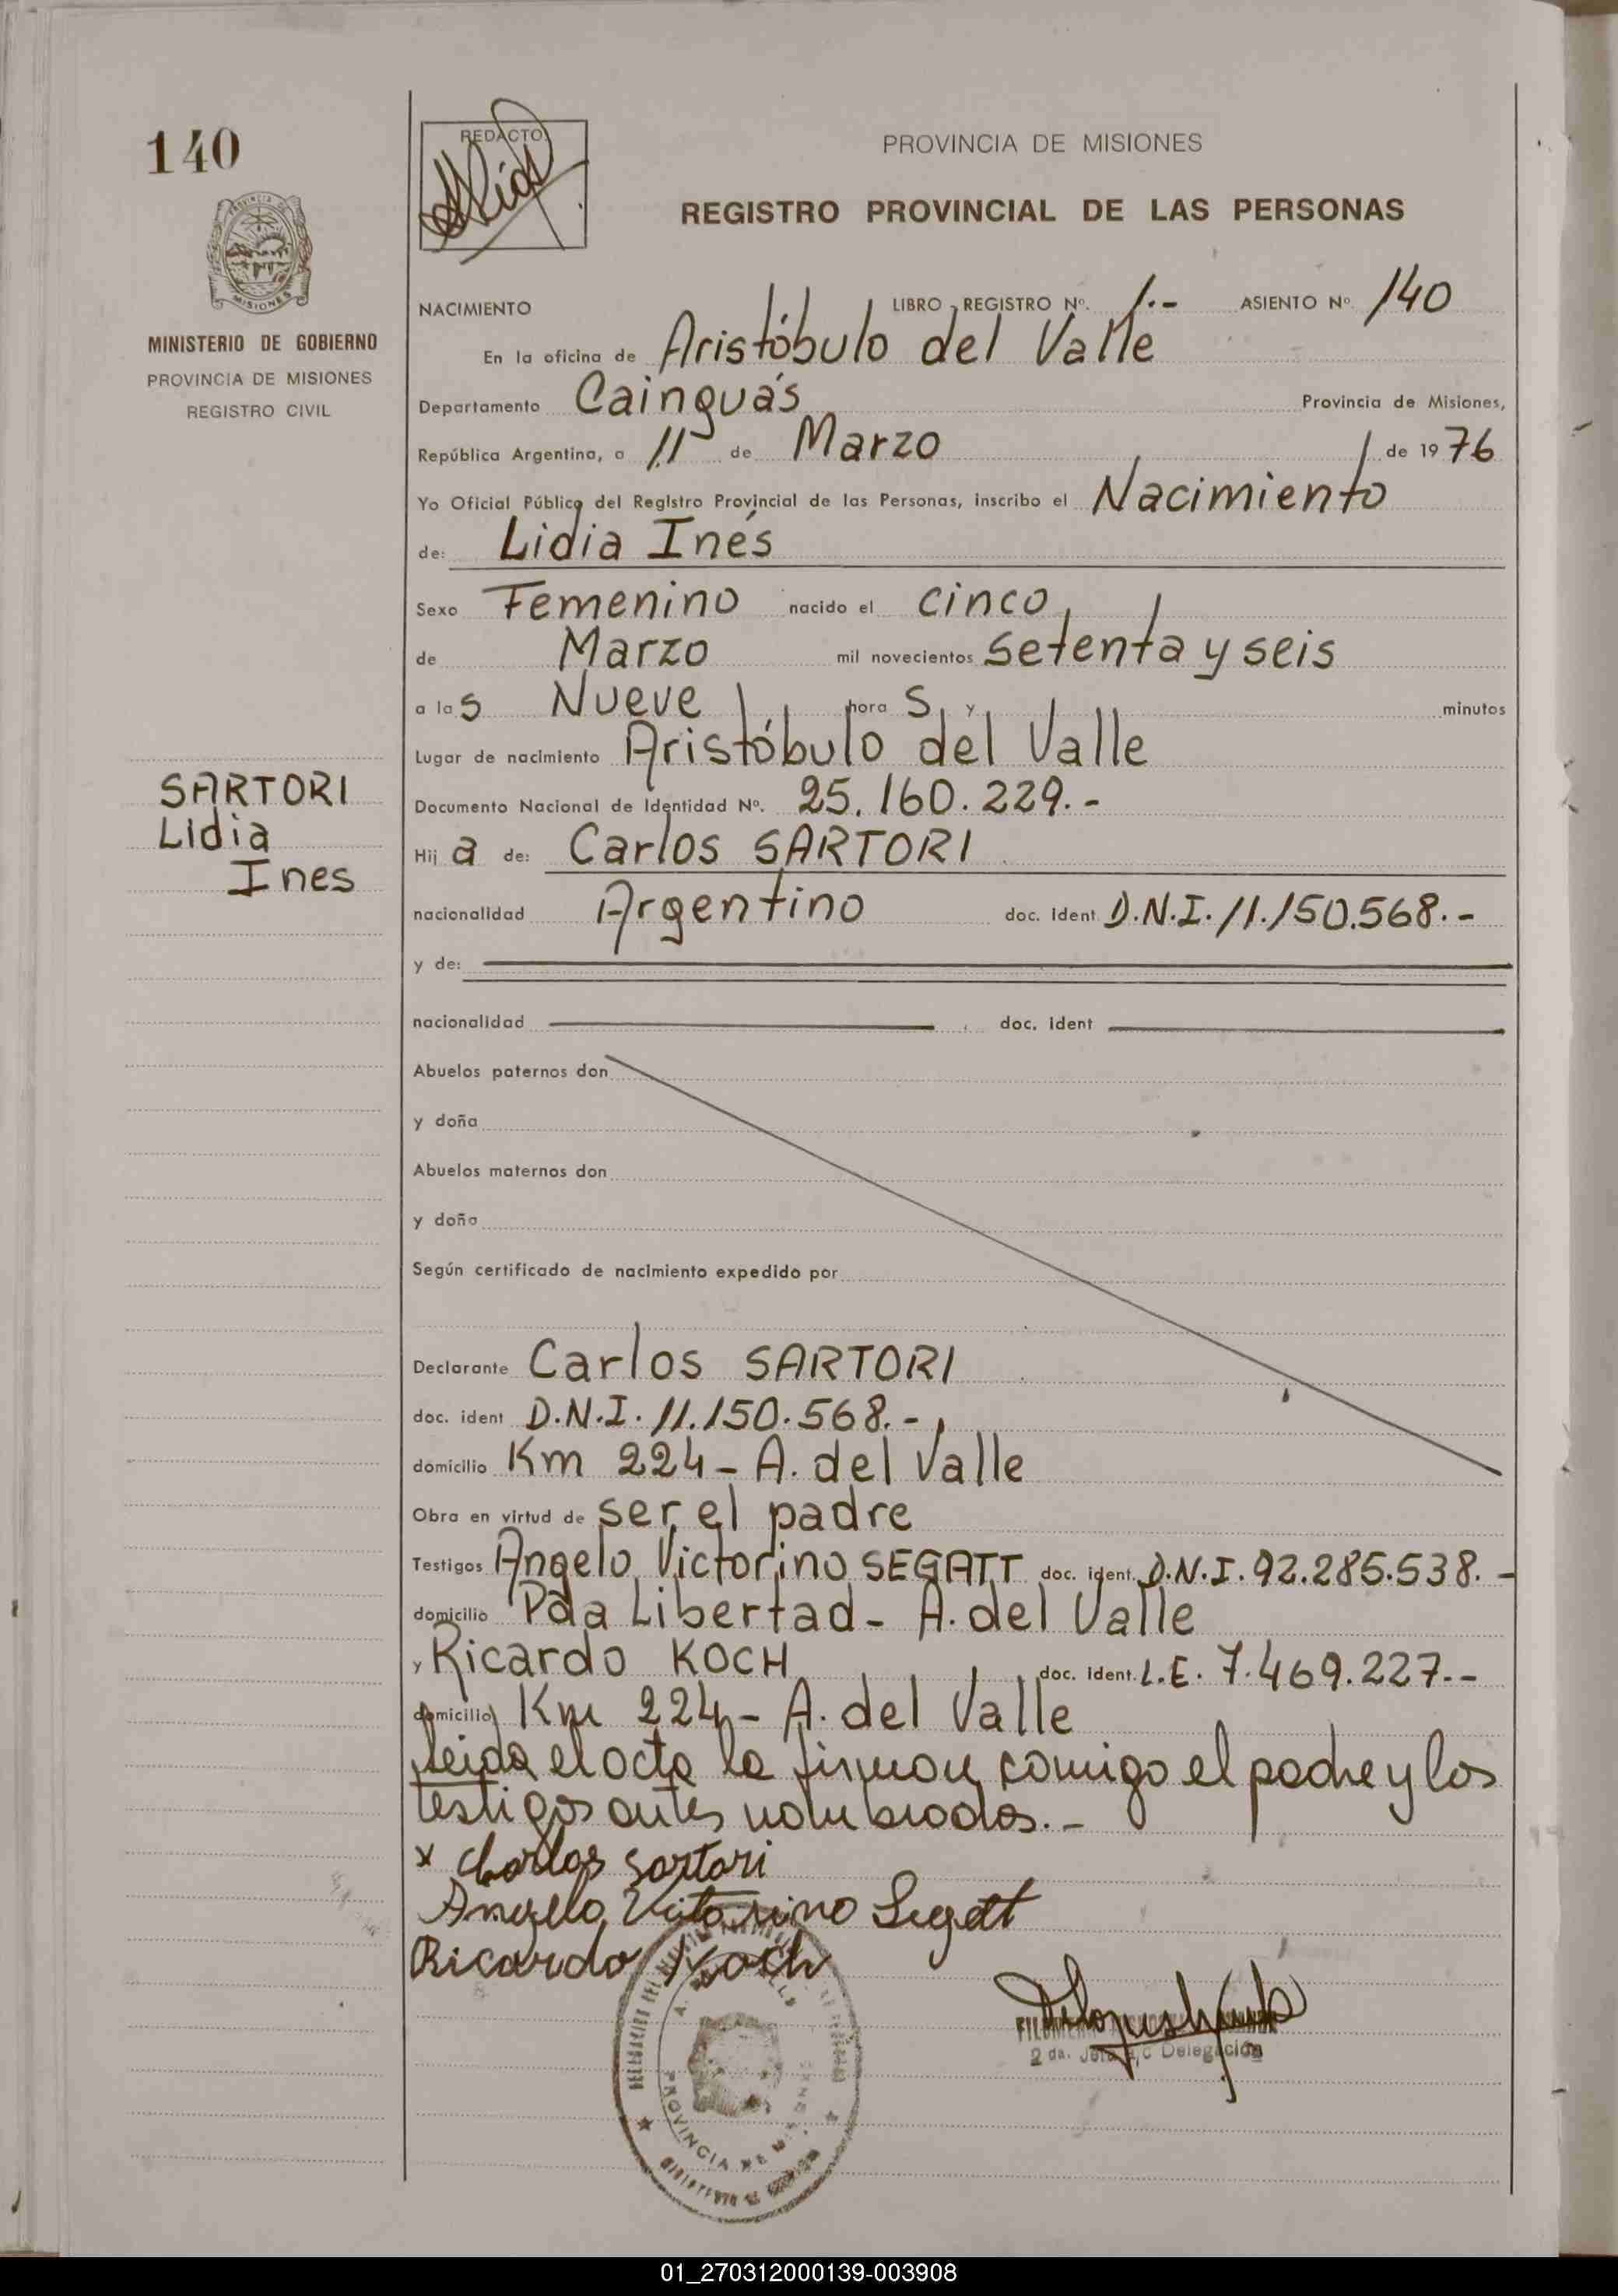 140
REDACTO
PROVINCIA DE MISIONES
REGISTRO PROVINCIAL DE LAS PERSONAS
MISIONES
MINISTERIO DE GOBIERNO
PROVINCIA DE MISIONES
REGISTRO CIVIL
NACIMIENTO LIBRO REGISTRO Nº. 1.- ASIENTO Nº. 140
En la oficina de Aristóbulo del Valle
Departamento Cainguás Provincia de Misiones,
República Argentina, a 11 de Marzo de 1976
Yo Oficial Público del Registro Provincial de las Personas, inscribo el Nacimiento
de: Lidia Inés
Sexo Femenino nacido el cinco
de Marzo mil novecientos setenta y seis
a las Nueve horas y minutos
Lugar de nacimiento Aristóbulo del Valle
SARTORI
Lidia
Ines
Documento Nacional de Identidad Nº. 25.160.229.-
Hija de: Carlos SARTORI
nacionalidad Argentino doc. ident D.N.I. 11.150.568.-
y de:
nacionalidad doc. ident
Abuelos paternos don
y doña
Abuelos maternos don
y doña
Según certificado de nacimiento expedido por
Declarante Carlos SARTORI
doc. ident D.N.I. 11.150.568.-
domicilio Km 224- A. del Valle
Obra en virtud de ser el padre
Testigos Angelo Victorino SEGATT doc. ident. D.N.I. 92.285.538.-
domicilio Pda Libertad- A. del Valle
y Ricardo KOCH doc. ident. L.E. 7.469.227.-
domicilio Km 224- A. del Valle
leida el acta la firman comigo el padre y los
testigos antes nombrados.-
x Carlos Sartori
Angello Vitorino Segatt
Ricardo Koch
2da. Jefa a/c Delegación
PROVINCIA DE MISIONES
01_270312000139-003908